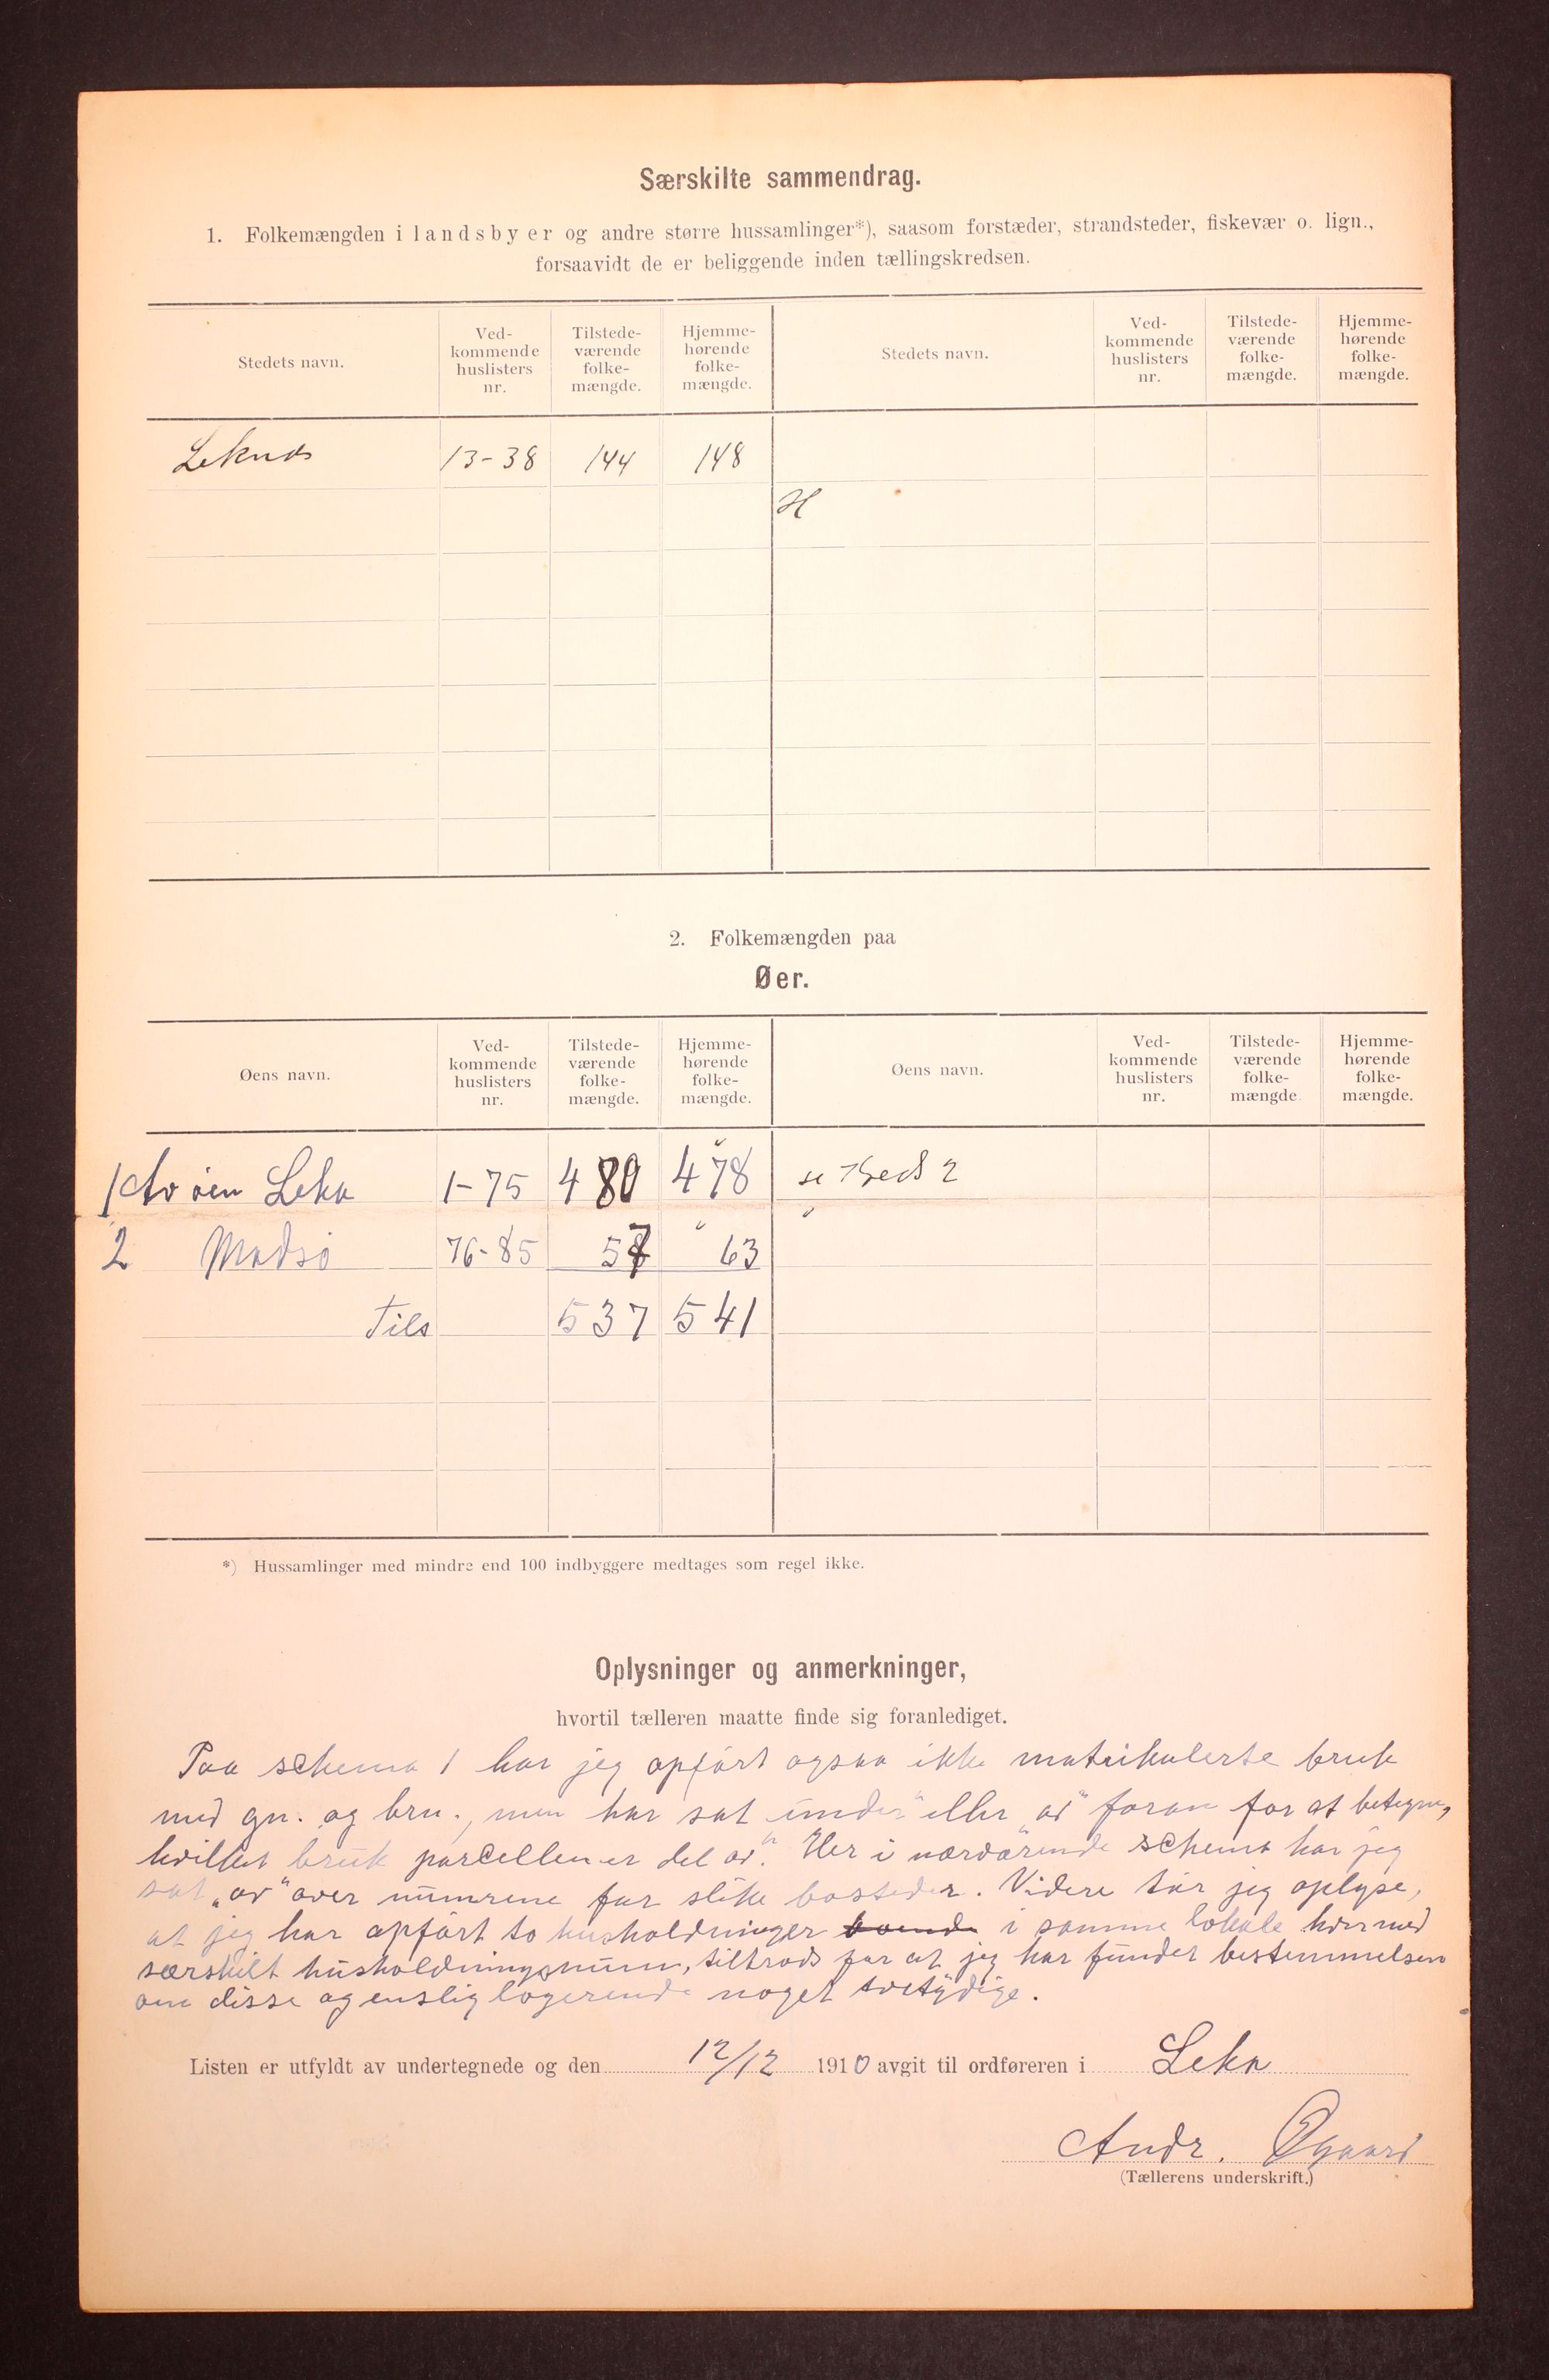 Særskilte sammendrag.
1. Folkemængden i landsbyer og andre større hussamlinger*), saasom forstæder, strandsteder, fiskevær o. lign.,
forsaavidt de er beliggende inden tællingskredsen.
Stedets navn. Ved-kommende huslisters nr. Tilstede-værende folke-mængde. Hjemme-hørende folke-mængde. Stedets navn. Ved-kommende huslisters nr. Tilstede-værende folke-mængde. Hjemme-hørende folke-mængde.
Leknes 13-38 144 148
H
2. Folkemængden paa
Øer.
Øens navn. Ved-kommende huslisters nr. Tilstede-værende folke-mængde. Hjemme-hørende folke-mængde. Øens navn. Ved-kommende huslisters nr. Tilstede-værende folke-mængde Hjemme-hørende folke-mængde.
1 Av øen Leka 1-75 480 478 se kreds 2
2 Madsø 76-85 57 63
Tils 537 541
*) Hussamlinger med mindre end 100 indbyggere medtages som regel ikke.
Oplysninger og anmerkninger,
hvortil tælleren maatte finde sig foranlediget.
Paa schema 1 har jeg opført ogsaa ikke matrikulerte bruk
med gn. og brn., men har sat "under" eller "av" foran for at betegne,
hvilket bruk parcellen er del av. Her i nærværende schema har jeg
sat "av" over numrene for slike bosteder. Videre tør jeg oplyse,
at jeg har opført to husholdninger boende i samme lokale hver med
særskilt husholdningsnum, tiltrods for at jeg har fundet bestemmelsen
om disse og enslig logerende noget tvetydige.
Listen er utfyldt av undertegnede og den 12/12 1910 avgit til ordføreren i Leka
Andr.
(Tællerens underskrift.)